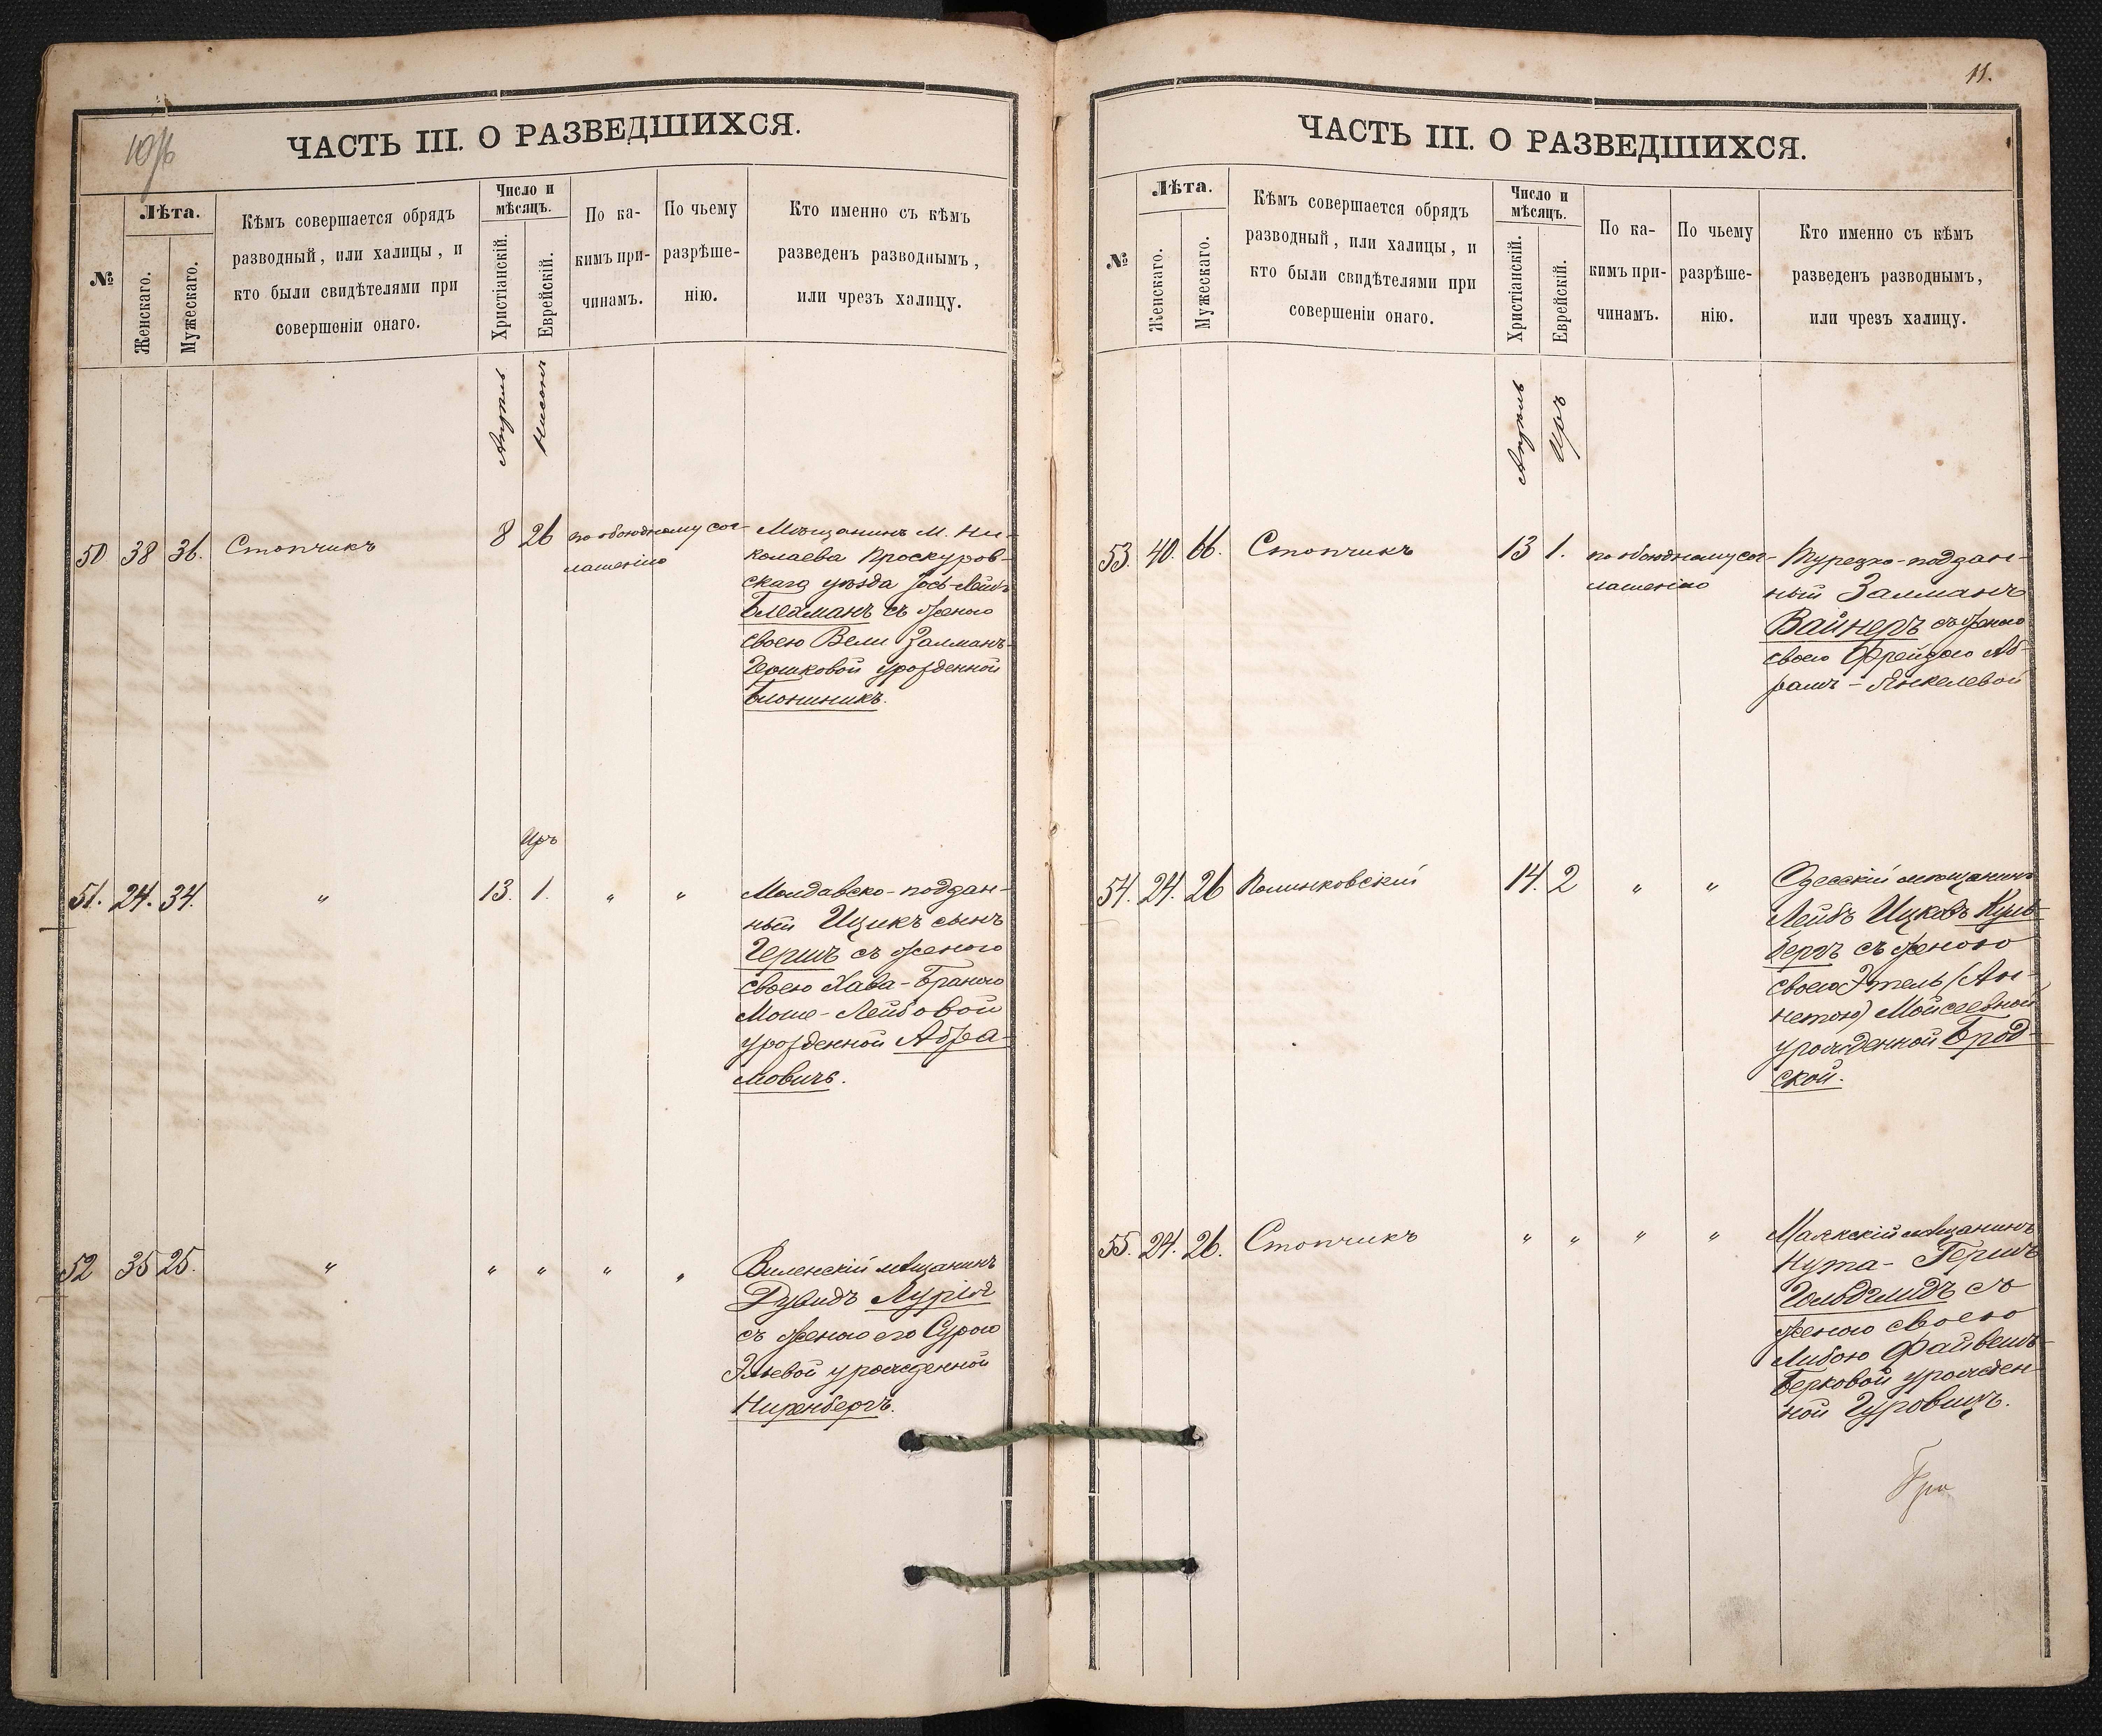 10 об
ЧАСТЬ III. О РАЗВЕДШИХСЯ.
№
Лѣта.
Женскаго.
Мужескаго.
Кѣмъ совершается обрядъ
разводный, или халицы, и
кто были свидѣтелями при
совершеніи онаго.
Число и
мѣсяцъ.
Христіанскій.
Еврейскій.
По ка-
кимъ при-
чинамъ.
По чьему
разрѣше-
нію.
Кто именно съ кѣмъ
разведенъ разводнымъ,
или чрезъ халицу.
Апрель
Нисонъ
50 38 36. Стопчикъ 8 26 по обоюдному сог-
лашенію
Мѣщанинъ М. Ни-
колаева Проскуров-
скаго уѣзда Іось-Лейбъ
Блейманъ съ женою
своею Вели Залманъ-
Гершковой урожденной
Блонникъ.
Иръ
51. 24. 34. " 13. 1. " "
Молдавско-поддан-
ный Ицикъ сынъ
Гершъ съ женою
своею Хава-Браною
Моше-Лейбовой
урожденной Абра-
мовичъ.
52 35 25. " " " " "
Виленскій мѣщанинъ
Дувидъ Лурія
съ женою его Сурою
Эльевой урожденной
Ниренбергъ.
11.
ЧАСТЬ III. О РАЗВЕДШИХСЯ.
№
Лѣта.
Женскаго.
Мужескаго.
Кѣмъ совершается обрядъ
разводный, или халицы, и
кто были свидѣтелями при
совершеніи онаго.
Число и
мѣсяцъ.
Христіанскій.
Еврейскій.
По ка-
кимъ при-
чинамъ.
По чьему
разрѣше-
нію.
Кто именно съ кѣмъ
разведенъ разводнымъ,
или чрезъ халицу.
Апрель
Иръ
53. 40. 66. Стопчикъ 13 1. по обоюдному сог-
лашенію
Турецко-поддан-
ный Залманъ
Вайнеръ съ женою
своею Фрейдою Аб-
рамъ-Янкелевой
54. 24. 26 Полинковскій 14. 2 " "
Одесскій мѣщанинъ
Лейбъ Ицковъ Куль-
бергъ съ женою
своею Этель (Ан-
нетою) Мойсеевной
урожденной Брод-
ской.
55. 24. 26. Стопчикъ " " " "
Маякскій мѣщанинъ
Нута-Гершъ
Гольдшмидъ съ
женою своею
Либою Файвишъ-
Берковой урожден-
ной Гуровичъ.